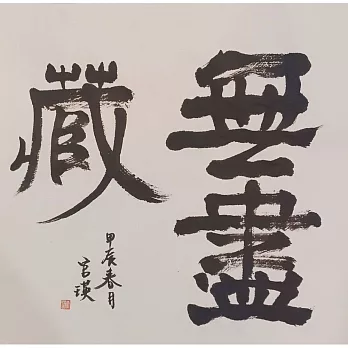 無盡
藏
甲辰春月
官瑛